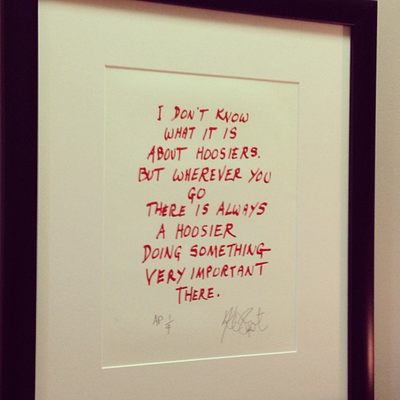 I DON'T KNOW
WHAT IT IS
ABOUT HOOSIERS.
BUT WHEREVER YOU
GO
THERE IS ALWAYS
A HOOSIER
DOING SOMETHING
VERY IMPORTANT
THERE.
AP